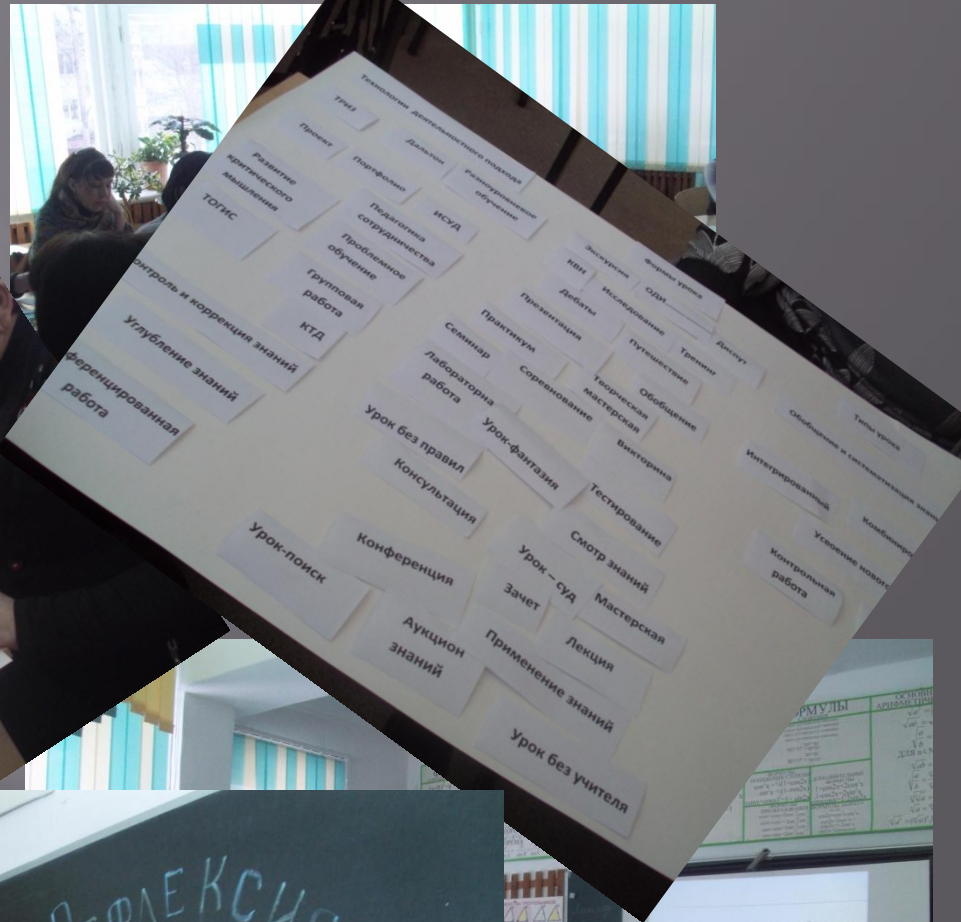 Технологии деятельностного подхода
ТРИЗ
Проект
Дальтон
Портфолио
Разноуровневое
обучение
Развитие
критического
мышления
ТОГИС
ИСУД
Педагогика
сотрудничества
Проблемное
обучение
Групповая
работа
КТД
онтроль и коррекция знаний
Углубление знаний
ференцированная
работа
Формы урока
Экскурсия
КВН
ОДИ
Исследование
Дебаты
Презентация
Диспут
Тренинг
Путешествие
Практикум
Семинар
Обобщение
Творческая
мастерская
Соревнование
Лабораторна
работа
Викторина
Урок-фантазия
Урок без правил
Тестирование
Консультация
Смотр знаний
Конференция
Урок-поиск
Урок – суд
Зачет
Мастерская
Аукцион
знаний
Лекция
Применение знаний
Урок без учителя
Типы урока
Обобщение и систематизация знани
Интегрированный
Комбиниро
Усвоение нового
Контрольная
работа
РМУЛЫ
ОСНОВН
АРИФМЕТИЧ
ЕФЛЕКСИЯ